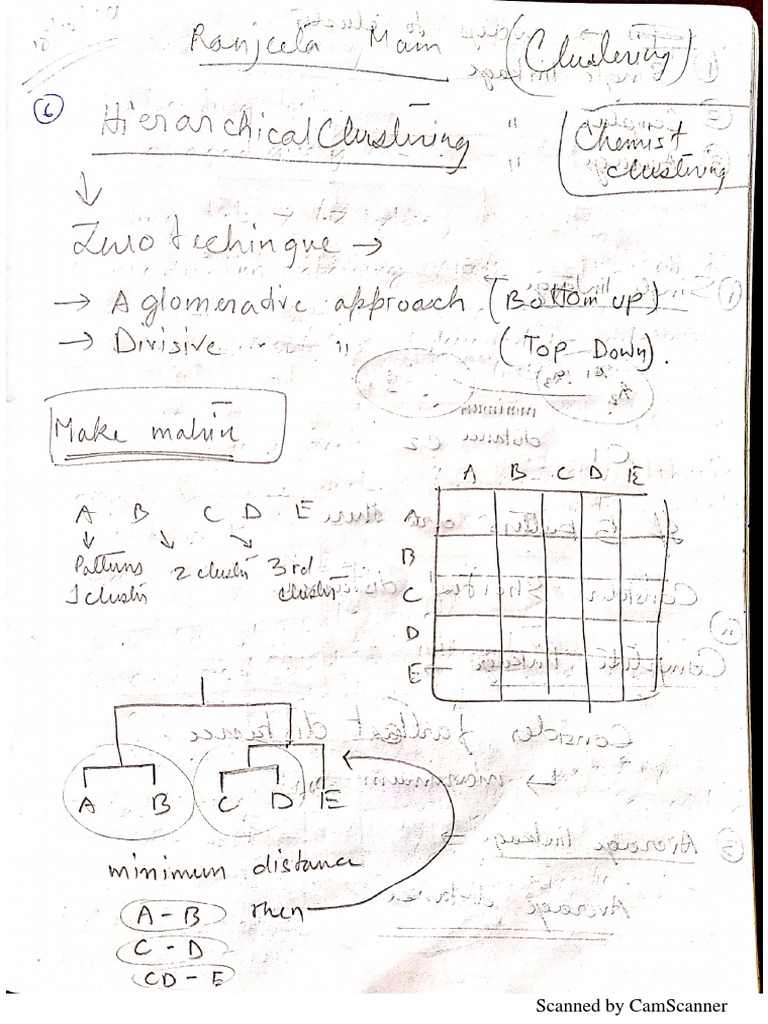 Ranjeela Mam (Clustering)
6
Hierarchical Clustering
Chemist
clustering
techingue →
→ Aglomerative approach (Bottom up)
→ Divisive " (Top Down).
Make matrix
A B C D E
A B C D E
Patterns 2 cluster 3rd
1 cluster cluster
A
B
C
D
E
A B C D E
minimum distance
A - B then
C - D
CD - E
Scanned by CamScanner